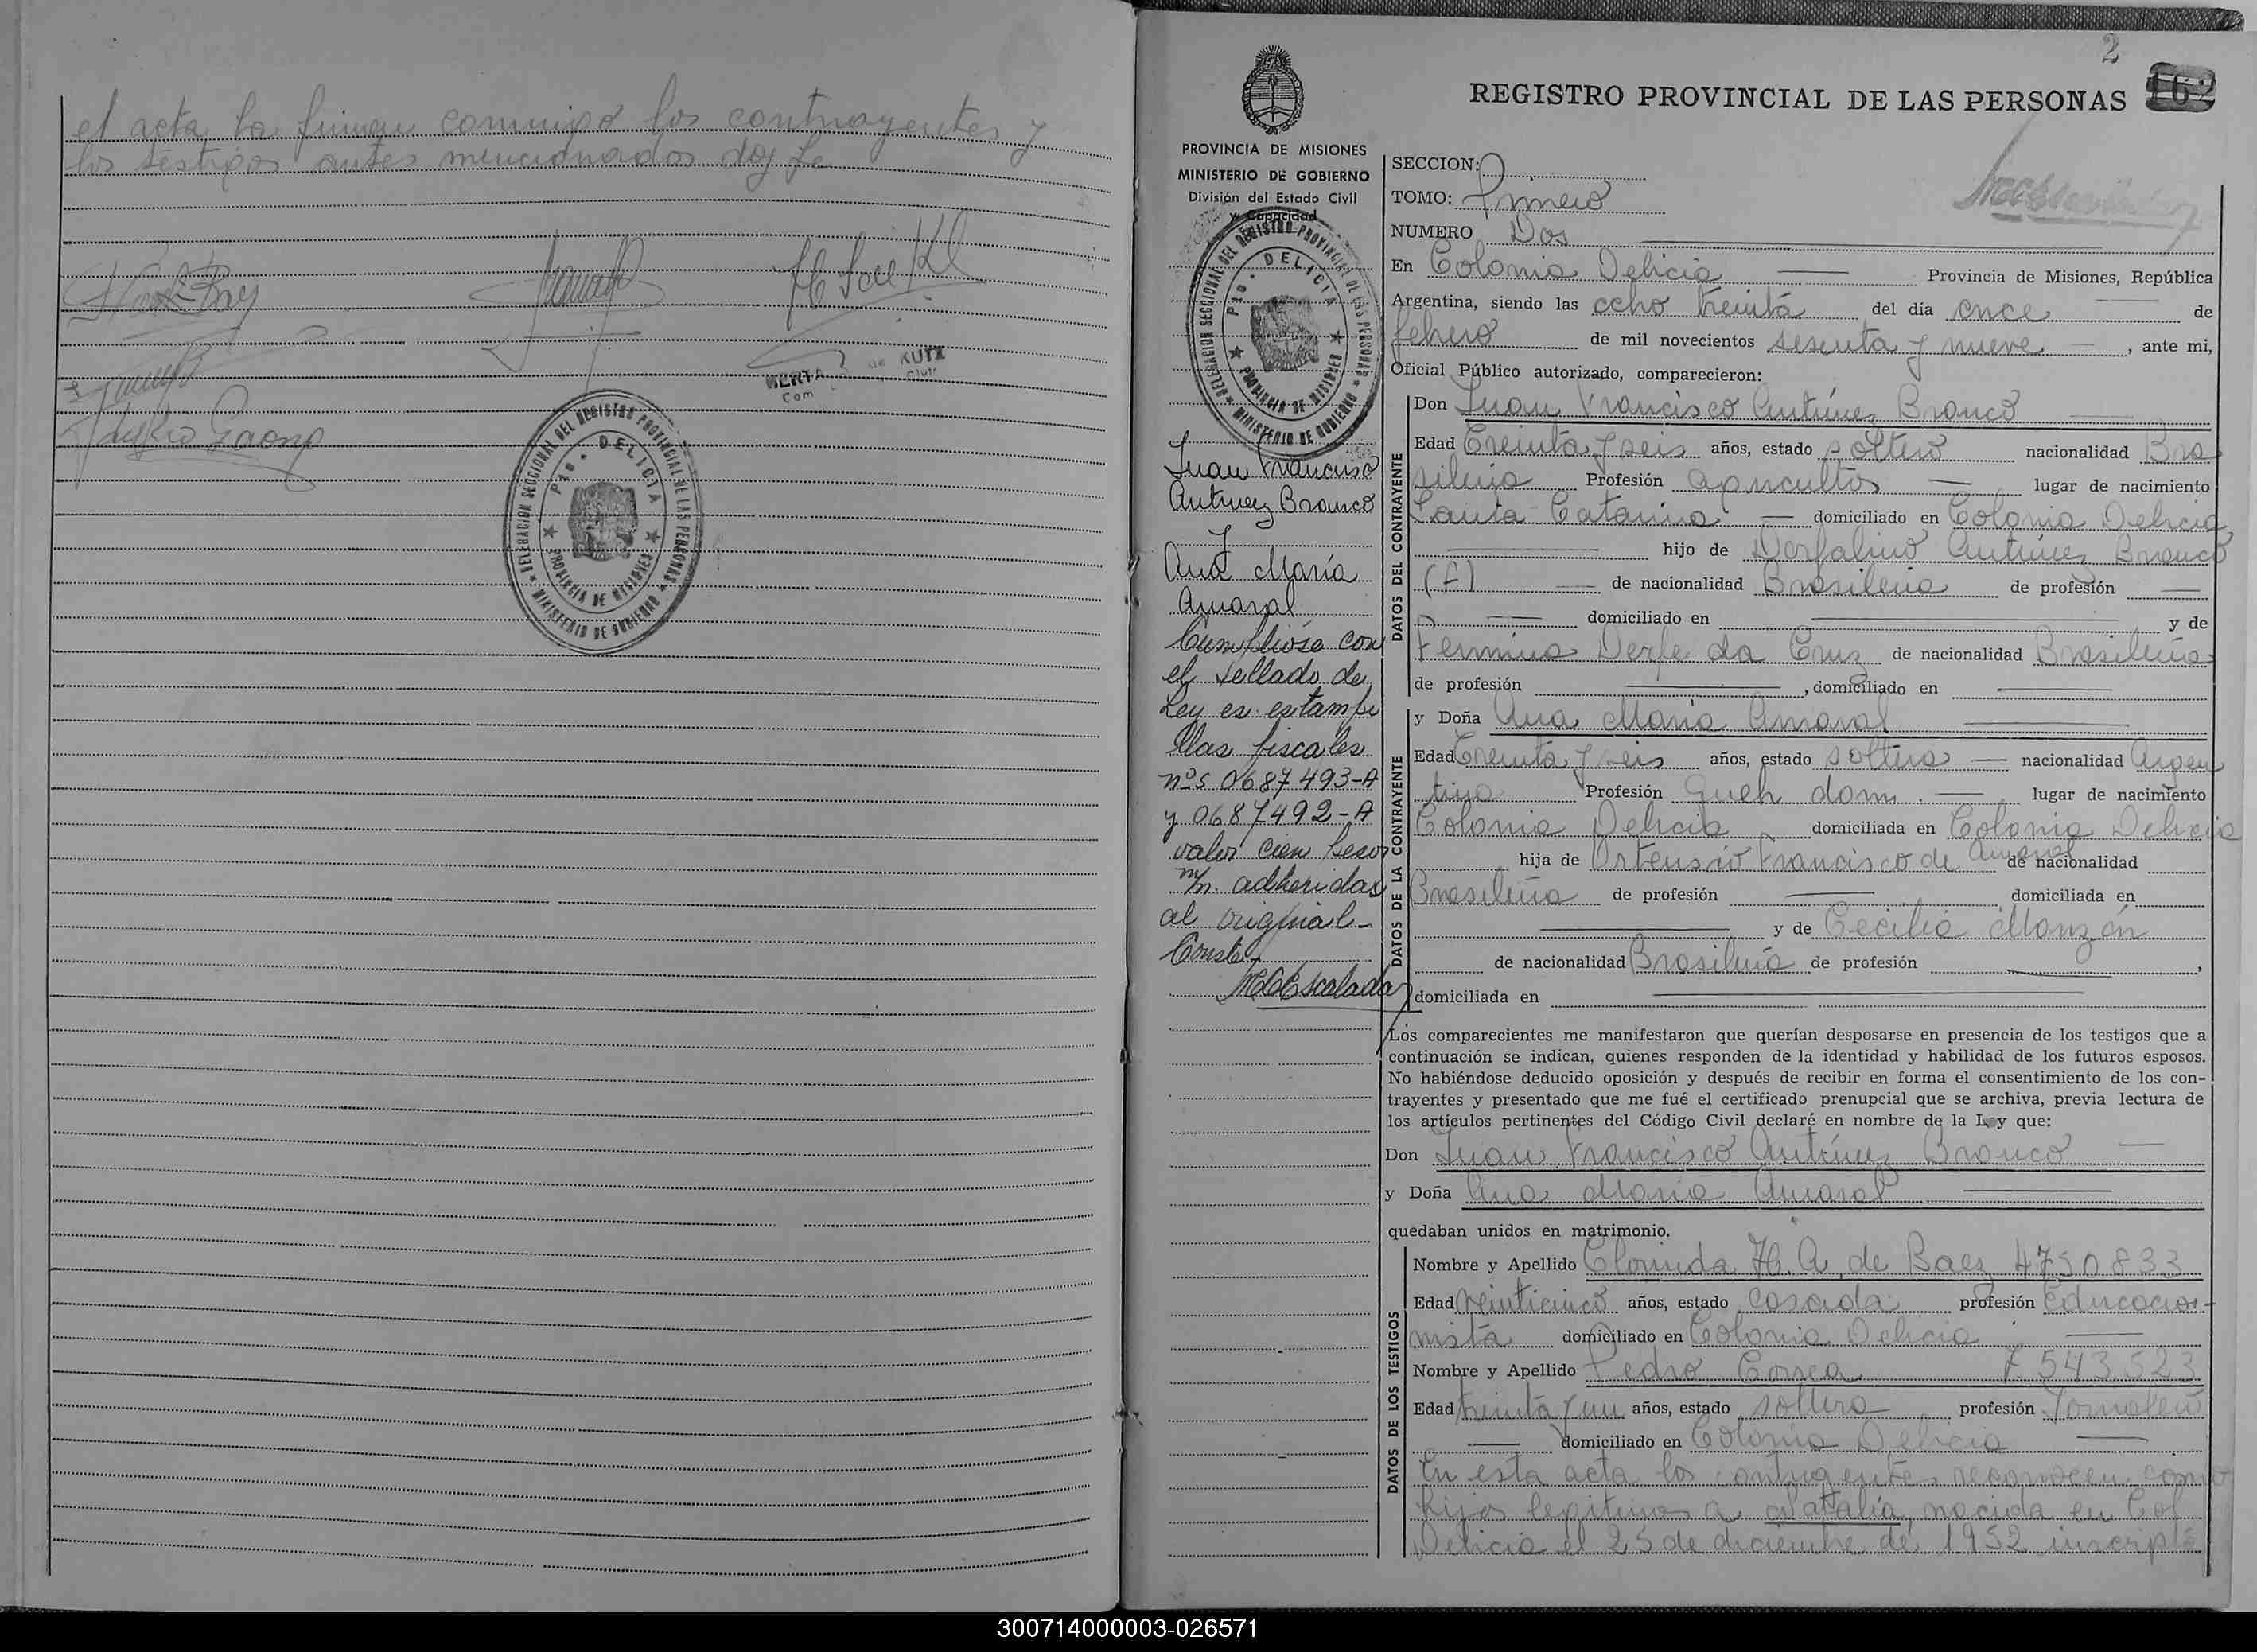 el acta la firman conmigo los contrayentes y
los testigos antes mencionados doy fe
Gaona
DELEGACION SECCIONAL DEL REGISTRO PROVINCIAL DE LAS PERSONAS
Pto. DELICIA
PROVINCIA DE MISIONES
MINISTERIO DE GOBIERNO
2
162
REGISTRO PROVINCIAL DE LAS PERSONAS
PROVINCIA DE MISIONES
MINISTERIO DE GOBIERNO
División del Estado Civil
y Capacidad
DELEGACION SECCIONAL DEL REGISTRO PROVINCIAL DE LAS PERSONAS
Pto. DELICIA
PROVINCIA DE MISIONES
MINISTERIO DE GOBIERNO
Juan Francisco
Antunez Branco
y
Ana María
Amaral
Cumplióse con
el sellado de
Ley es. estampi
llas fiscales
nºs 0687493-A
y 0687492-A
valor cien pesos
m/n. adheridas
al original-
Conste
Escalada
SECCION:
TOMO: Primero
NUMERO Dos
En Colonia Delicia Provincia de Misiones, República
Argentina, siendo las ocho treinta del día once de
febrero de mil novecientos sesenta y nueve, ante mi,
Oficial Público autorizado, comparecieron:
DATOS DEL CONTRAYENTE
Don Juan Francisco Antúnez Branco
Edad Treinta y seis años, estado soltero nacionalidad Bra
sileña Profesión Agricultor lugar de nacimiento
Santa Catarina domiciliado en Colonia Delicia
hijo de Antúnez Branco
(f) de nacionalidad Brasileña de profesión
domiciliado en y de
Fermina da Cruz de nacionalidad Brasileña
de profesión , domiciliado en
DATOS DE LA CONTRAYENTE
y Doña Ana María Amaral
Edad Treinta y seis años, estado soltera nacionalidad Argen
tina Profesión Queh dom. lugar de nacimiento
Colonia Delicia domiciliada en Colonia Delicia
hija de Ortensio Francisco de Amaral de nacionalidad
Brasileña de profesión domiciliada en
y de Cecilia Monzón
de nacionalidad Brasileña de profesión ,
domiciliada en
Los comparecientes me manifestaron que querían desposarse en presencia de los testigos que a
continuación se indican, quienes responden de la identidad y habilidad de los futuros esposos.
No habiéndose deducido oposición y después de recibir en forma el consentimiento de los con-
trayentes y presentado que me fué el certificado prenupcial que se archiva, previa lectura de
los artículos pertinentes del Código Civil declaré en nombre de la Ley que:
Don Juan Francisco Antúnez Branco
y Doña Ana María Amaral
quedaban unidos en matrimonio.
DATOS DE LOS TESTIGOS
Nombre y Apellido Clorinda H. A. de Baez 4750833
Edad veinticinco años, estado casada profesión Educacio-
nista domiciliado en Colonia Delicia
Nombre y Apellido Pedro Correa 7.543.523
Edad treinta y un años, estado soltero profesión Jornalero
domiciliado en Colonia Delicia
En esta acta los contrayentes reconocen como
hijos legitimos a Natalia nacida en Col
Delicia el 25 de diciembre de 1952 inscripta
300714000003-026571